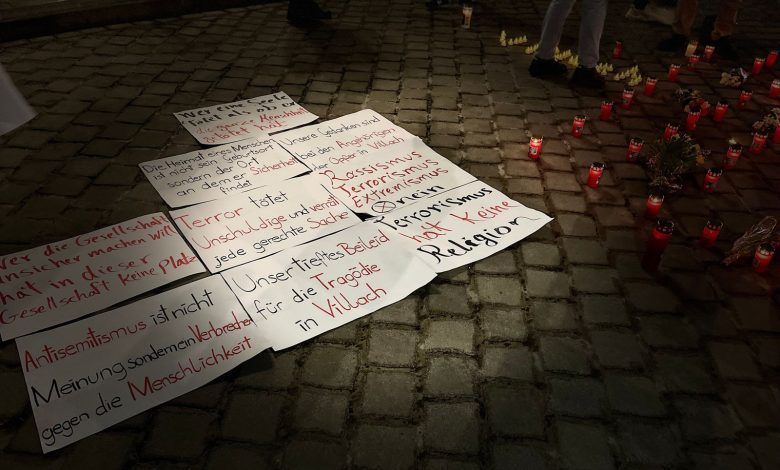 Wer eine
die ganze Menschheit
Die Heimat eines Menschen
ist nicht sein Geburtsort
sondern der Ort
an dem er Sicherheit
findet
Unsere Gedanken sind
bei den Angehörigen
der Opfer in Villach
Rassismus
Terrorismus
Extremismus
nein
Terrorismus
hat keine
Religion
Terror tötet
Unschuldige und verrät
jede gerechte Sache
Wer die Gesellschaft
unsicher machen will
hat in dieser
Gesellschaft keine Platz
Unser tiefstes Beileid
für die Tragödie
in Villach
Antisemitismus ist nicht
Meinung sondern ein Verbrechen
gegen die Menschlichkeit